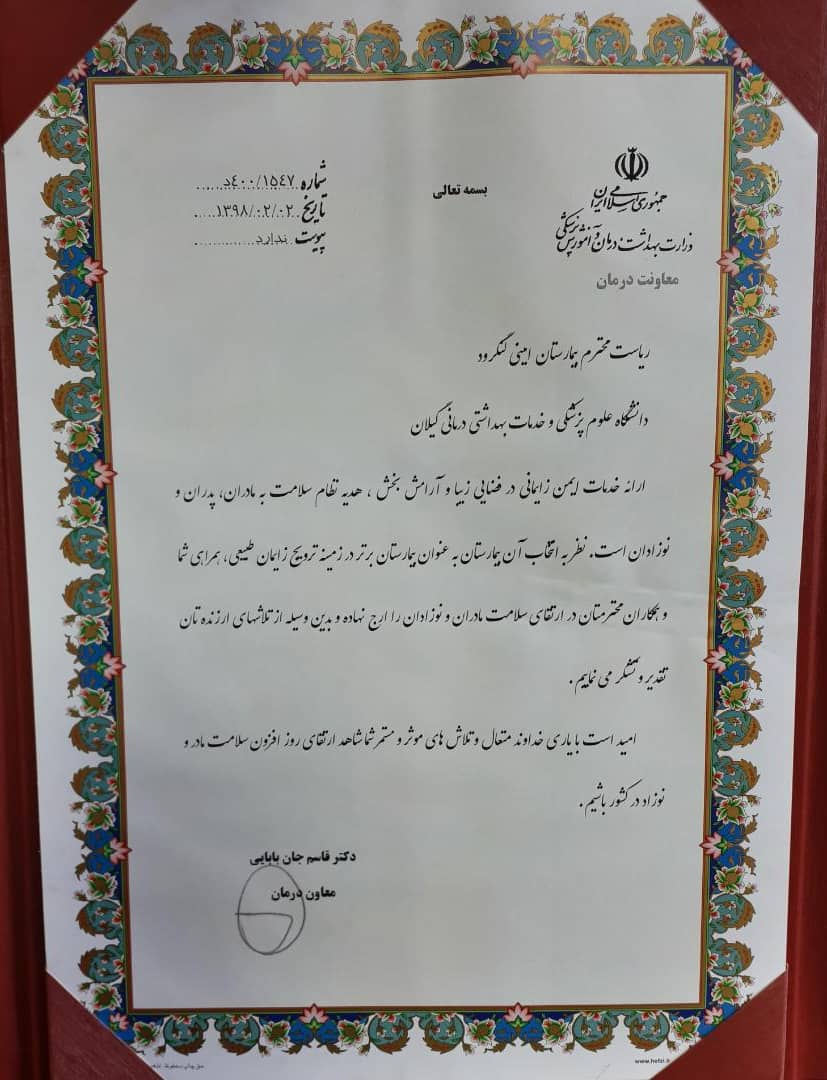 بسمه تعالی
جمهوری اسلامی ایران
وزارت بهداشت، درمان و آموزش پزشکی
معاونت درمان
شماره ۴۰۰/۱۵۴۷د
تاریخ ۱۳۹۸/۰۲/۰۲
پیوست ندارد
ریاست محترم بیمارستان امینی لنگرود
دانشگاه علوم پزشکی و خدمات بهداشتی درمانی گیلان
ارائه خدمات ایمن زایمانی در فضایی زیبا و آرامش بخش ، هدیه نظام سلامت به مادران، پدران و
نوزادان است. نظر به انتخاب آن بیمارستان به عنوان بیمارستان برتر در زمینه ترویج زایمان طبیعی، همراهی شما
و همکاران محترمتان در ارتقای سلامت مادران و نوزادان را ارج نهاده و بدین وسیله از تلاشهای ارزنده تان
تقدیر و تشکر می نماییم .
امید است با یاری خداوند متعال و تلاش های موثر و مستمر شما شاهد ارتقای روز افزون سلامت مادر و
نوزاد در کشور باشیم .
دکتر قاسم جان بابایی
معاون درمان
www.hefzi.ir